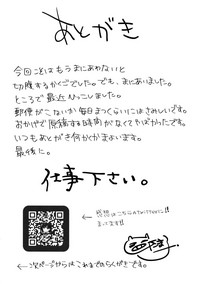 あとがき
今回ことはもうまにあわないと
切腹するかくごでした。でも、まにあいました。
ところで最近ひっこしました。
郵便がこないお毎日まっくらいにはさみしいです。
おかげで原稿する時間がなくてやばかったです。
いつもあとがき何かくかまよいます。
最後に。
仕事下さい。
←感想はこちらのTwitterに!!
まってます!!
←次ページからは これまでのらくがきです。